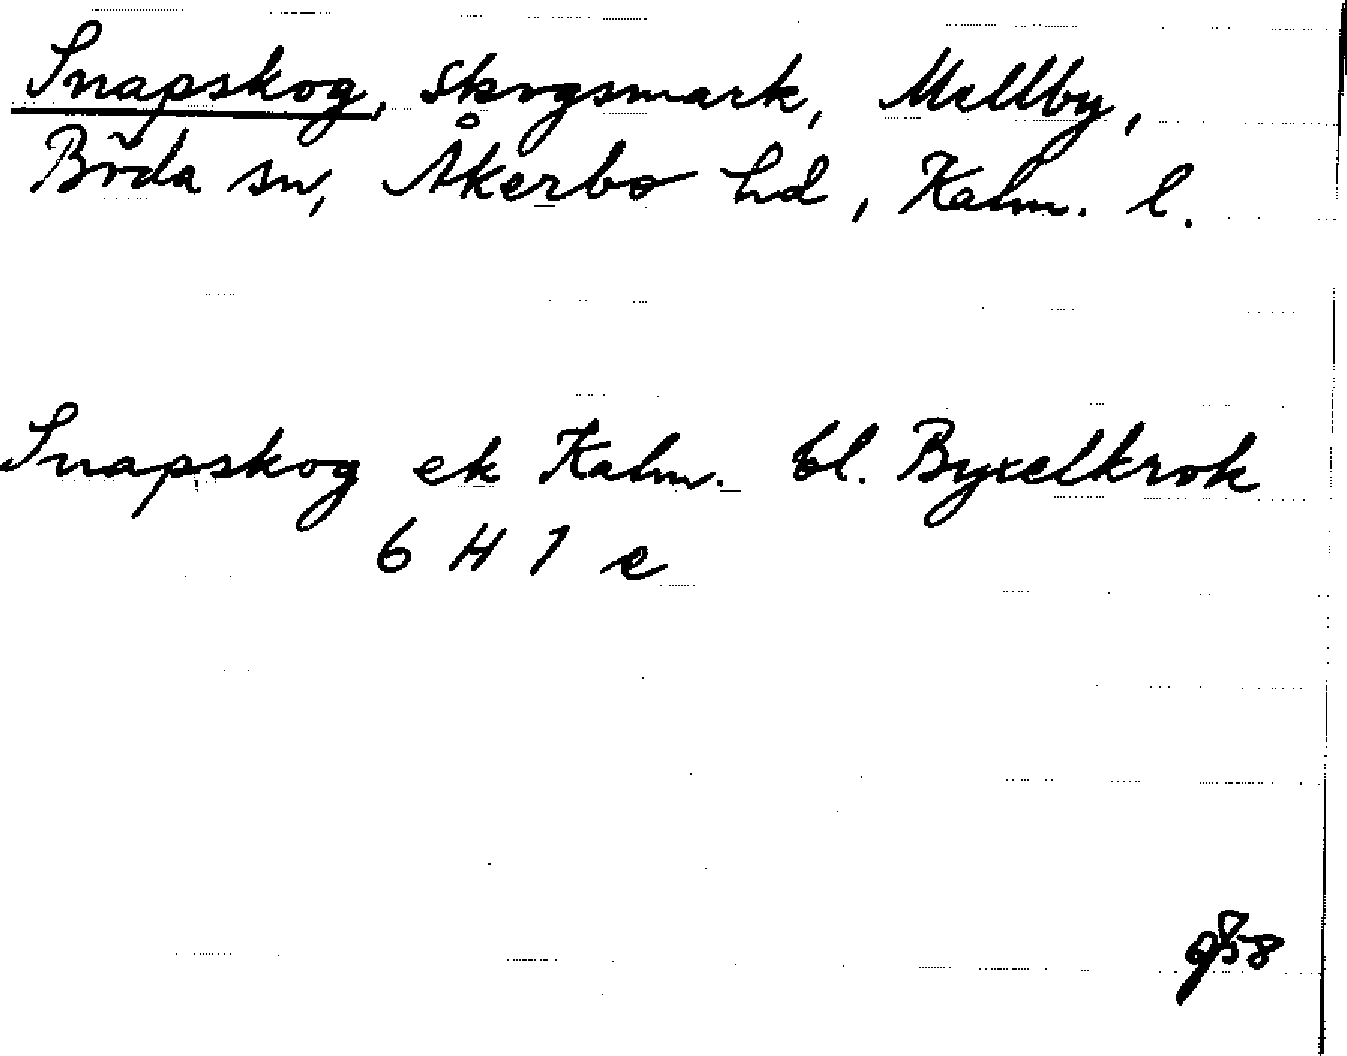 Snapskog, Skogsmark, Mellby,
Böda sn, Åkerbo hd, Kalm. l.
Snapskog ek Kalm. bl. Byxelkrok
6 H 7 e